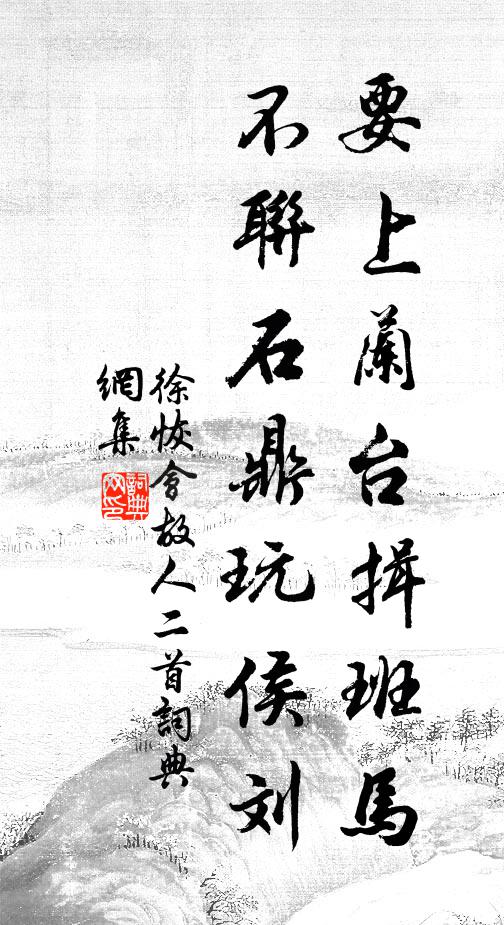 要上蘭台揖班馬
不聯石鼎玩侯刘
徐恢會故人二首詞典
網集
詞典
网印